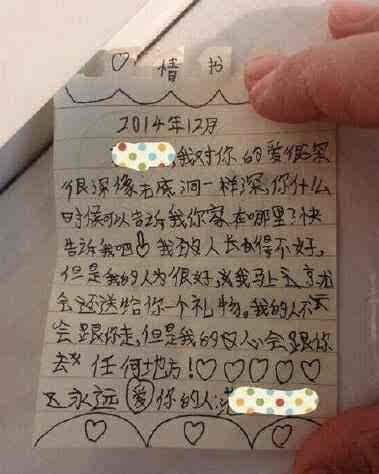 ♡ 情 书
2014年12月
,我对你的爱很深
很深像无底洞一样深,你什么
时候可以告诉我你家在哪里?快
告诉我吧!我的人长得不好,
但是我的人为很好,我马上
会还送给你一个礼物。我的人不
会跟你走,但是我的心会跟你
去 任何地方!♡♡♡♡♡
永远爱你的人: